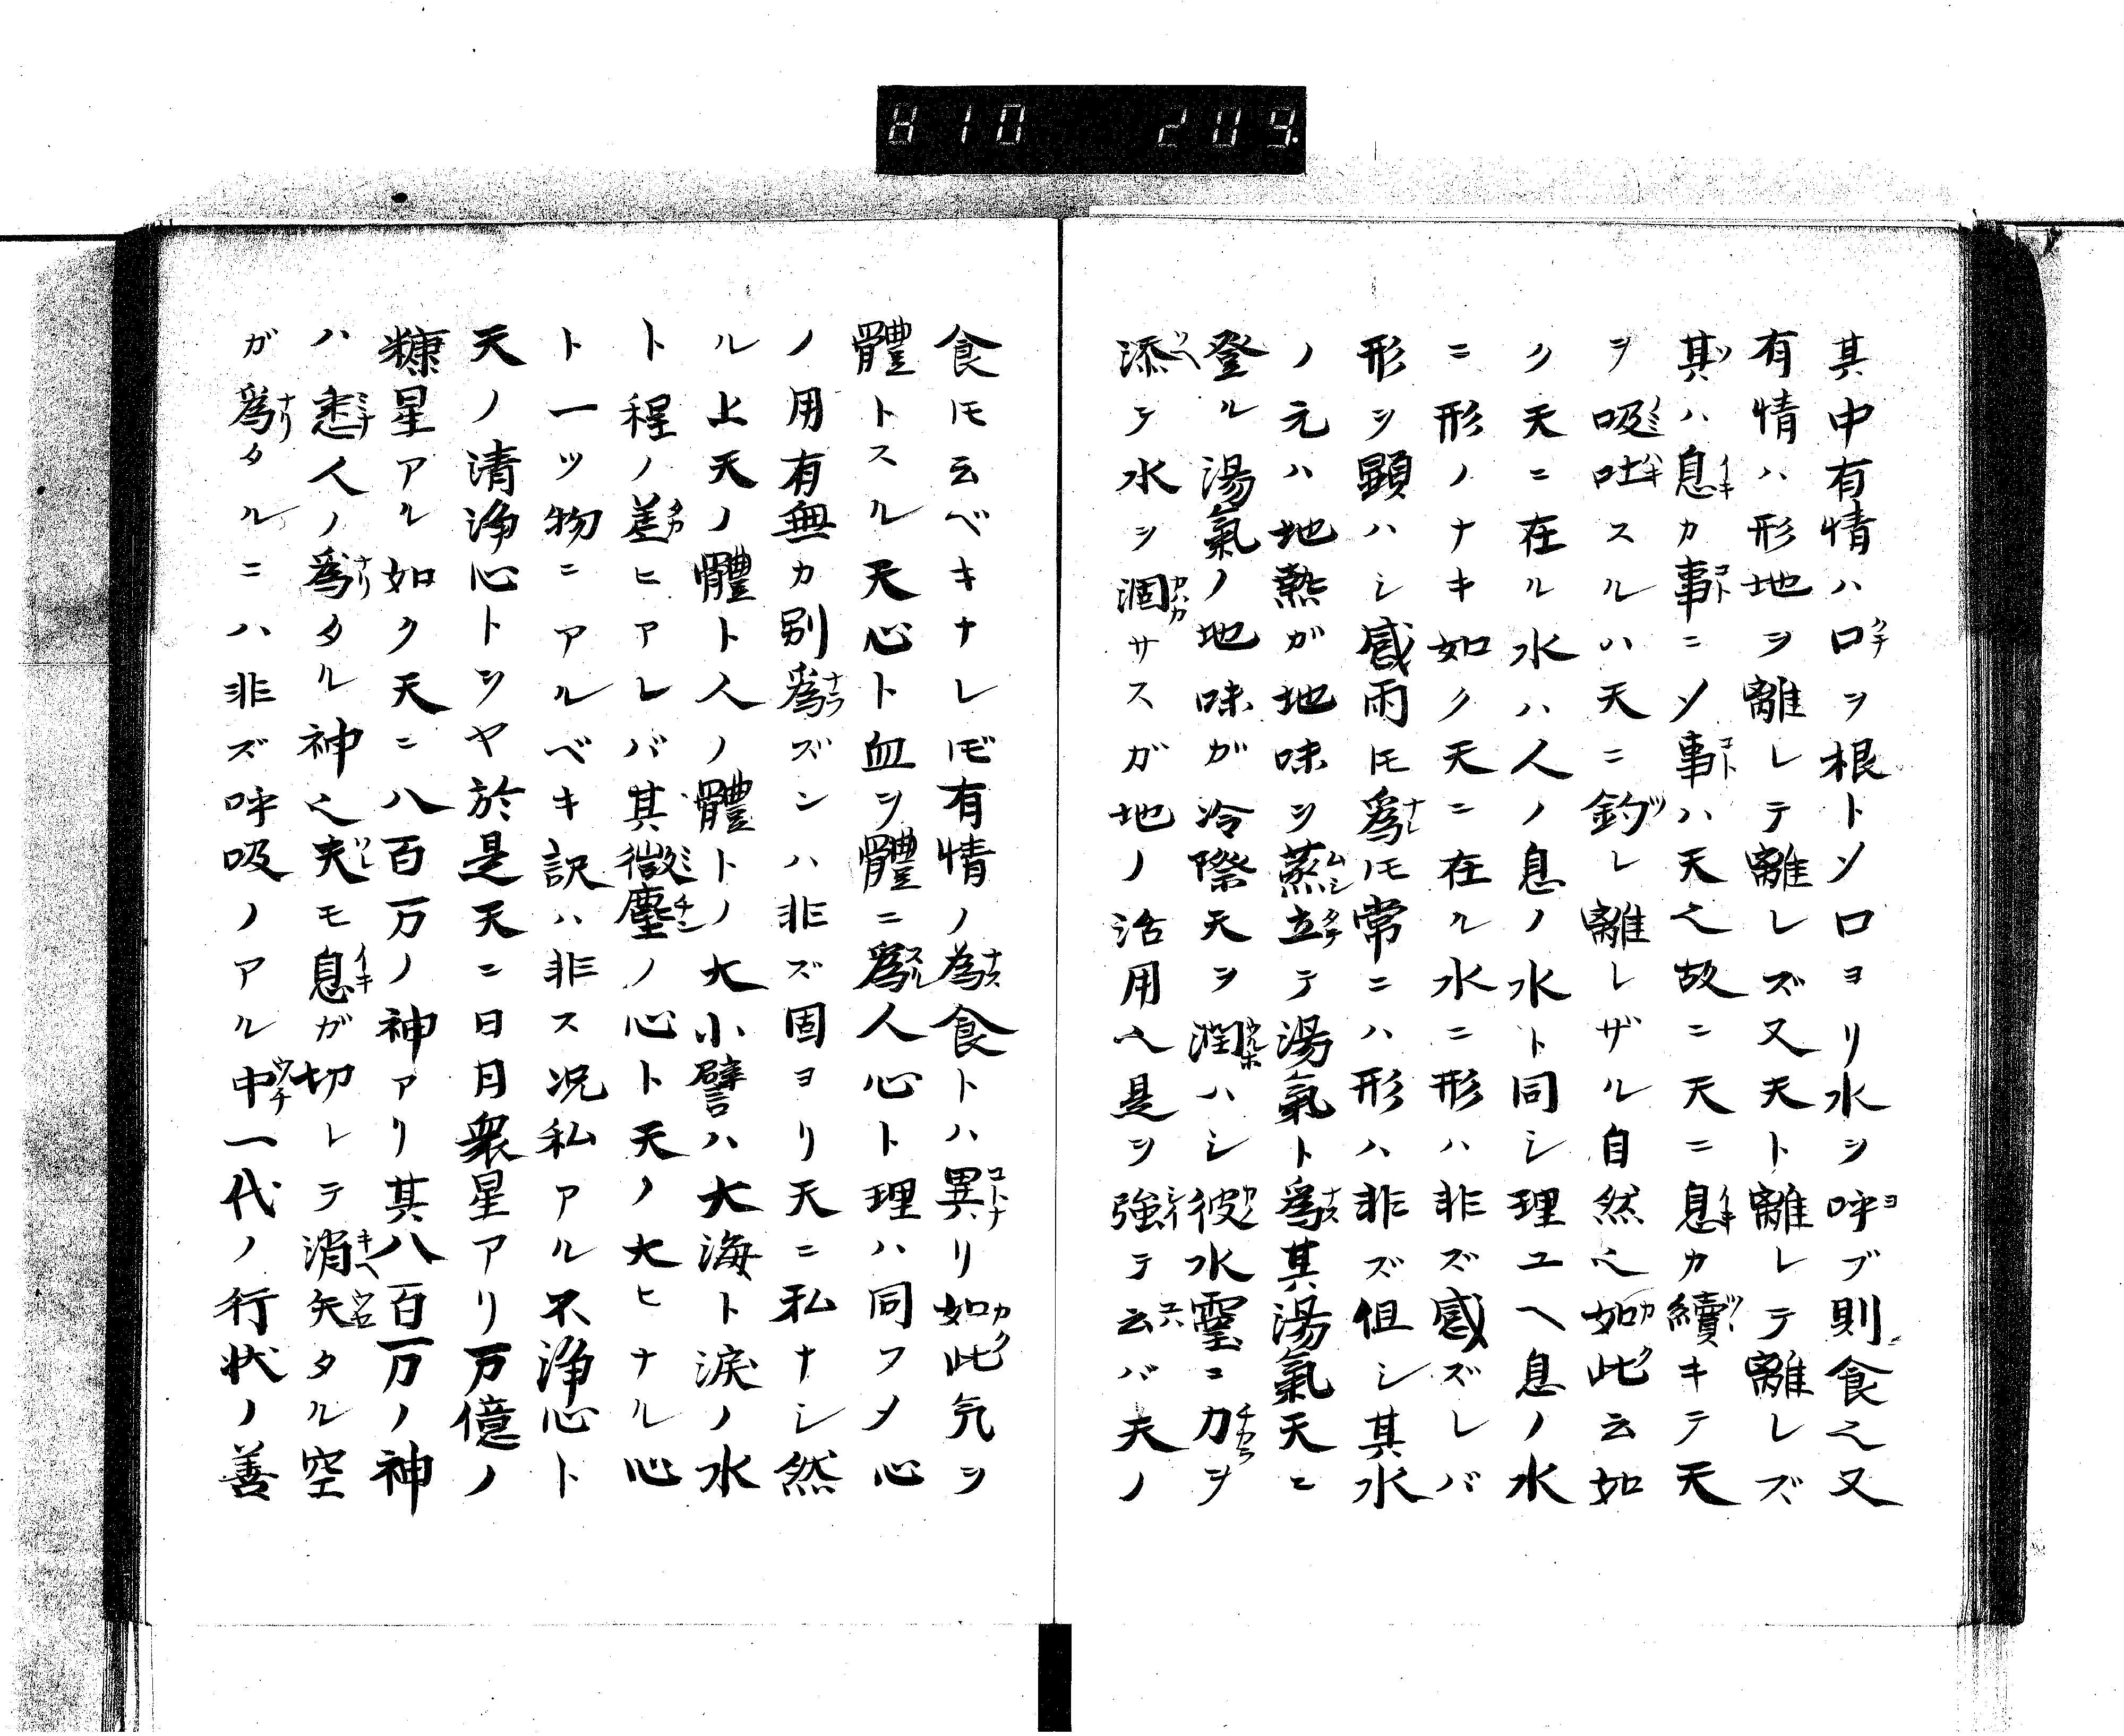 810 209.
其中有情ハ口ヲ根トソ口ヨリ水ヲ呼ブ則食之又
有情ハ形地ヲ離レテ離レズ又天ト離レテ離レズ
其ハ息カ事ニソ事ハ天之故ニ天ニ息カ續キテ天
ヲ吸吐スルハ天ニ釣レ離レザル自然之如此云如
ク天ニ在ル水ハ人ノ息ノ水ト同シ理ユヘ息ノ水
ニ形ノナキ如ク天ニ在ル水ニ形ハ非ズ感ズレバ
形ヲ顕ハシ感雨圧爲圧常ニハ形ハ非ズ但シ其水
ノ元ハ地熱ガ地味ヲ蒸立テ湯氣ト爲其湯氣天ニ
登ル湯氣ノ地味ガ冷際天ヲ潤ハシ彼水靈ニ力ヲ
添テ水ヲ涸サスガ地ノ活用之是ヲ強テ云バ夫ノ
食圧云ベキナレ圧有情ノ為食トハ異リ如此気ヲ
體トスル天心ト血ヲ體ニ爲人心ト理ハ同フメ心
ノ用有無カ別爲ズンハ非ズ固ヨリ天ニ私ナシ然
ル上天ノ體ト人ノ體トノ大小譬ハ大海ト涙ノ水
ト程ノ差ヒアレバ其微塵ノ心ト天ノ大ヒナル心
ト一ッ物ニアルベキ訳ハ非ス况私アル不浄心ト
天ノ清浄心トシヤ於是天ニ日月衆星アリ万億ノ
糠星アル如ク天ニ八百万ノ神アリ其八百万ノ神
ハ悉人ノ爲タル神之夫モ息ガ切レテ消矢タル空
ガ爲タルニハ非ズ呼吸ノアル中一代ノ行状ノ善